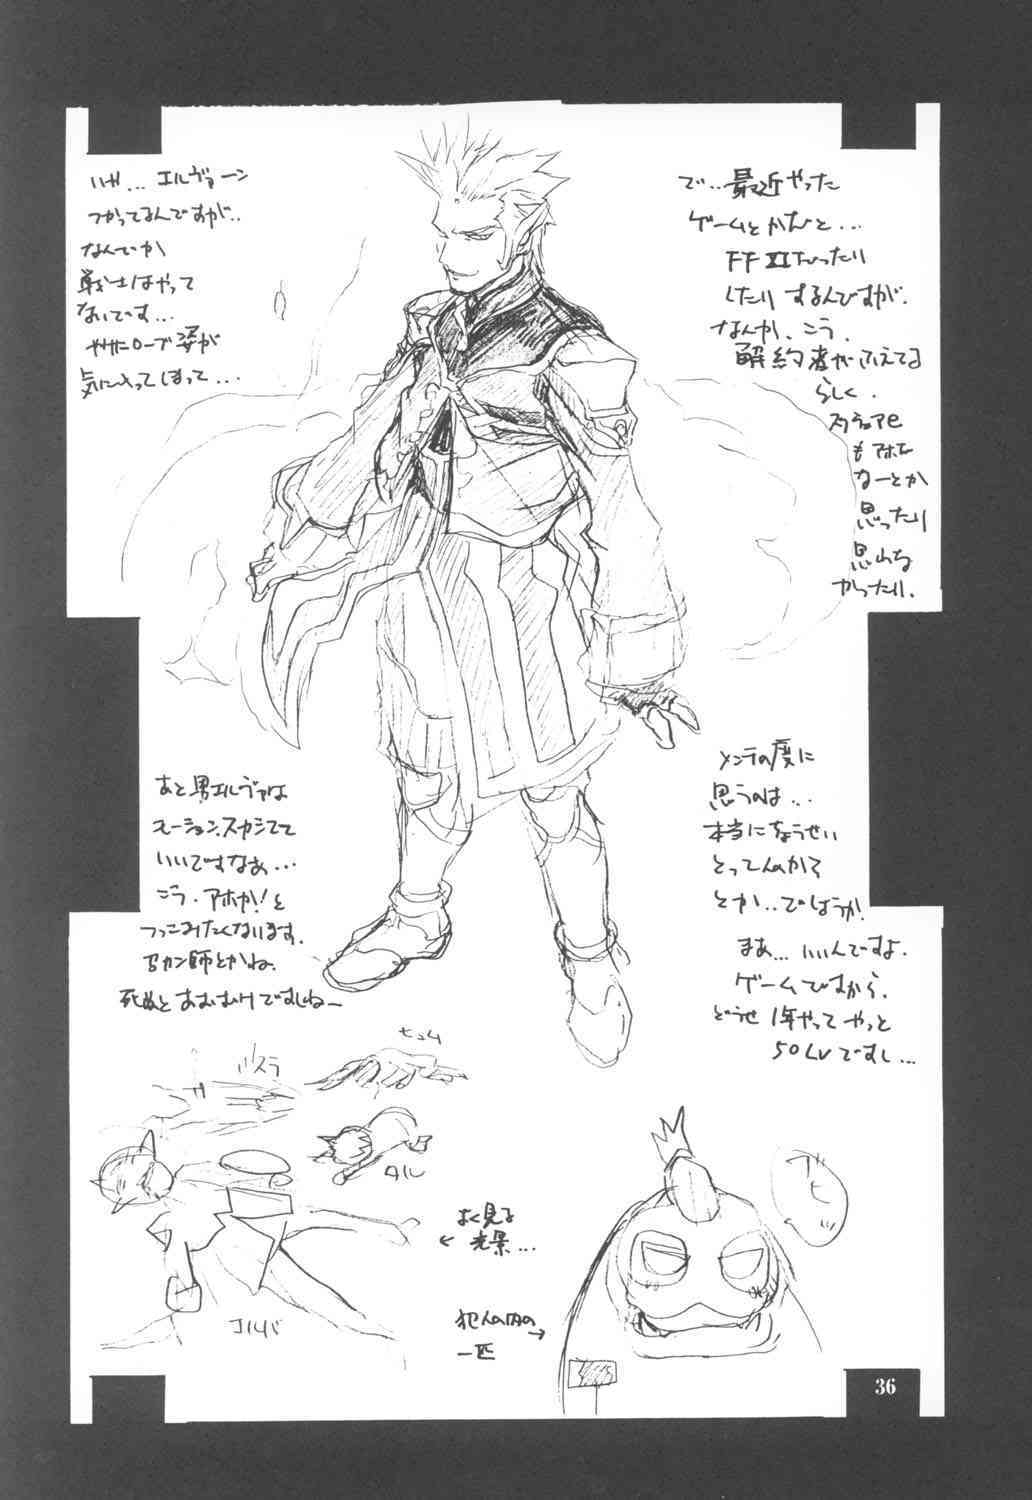 で‥最近やった
ゲームとかだと...
FFXIだったり
したりするんですが.
なんか、こう.
解約者がふえてる
らしく.
スクウェアも
アホだ
なーとか
思ったり
思わな
かったり.
いや... エルヴァーン
つかってるんですが‥
なんでか
戦士はやって
ないです...
やけにローブ姿が
気に入ってしまって...
メンテの度に
思うのは...
本当にちょうせい
とってんのかぁ
とか‥でしょうか.
まぁ... いいんですよ.
ゲームですから.
どうせ1年やってやっと
50Lvですし...
あと男エルヴァは
モーション、スカシてて
いいですなぁ...
こう、アホか!と
つっこみたくなります.
アカン師とかね.
死ぬとあおむけですしねー
ガルカ
ヒュム
タル
エルバ
よく見る
← 光景...
犯人の内の→
一匹
36